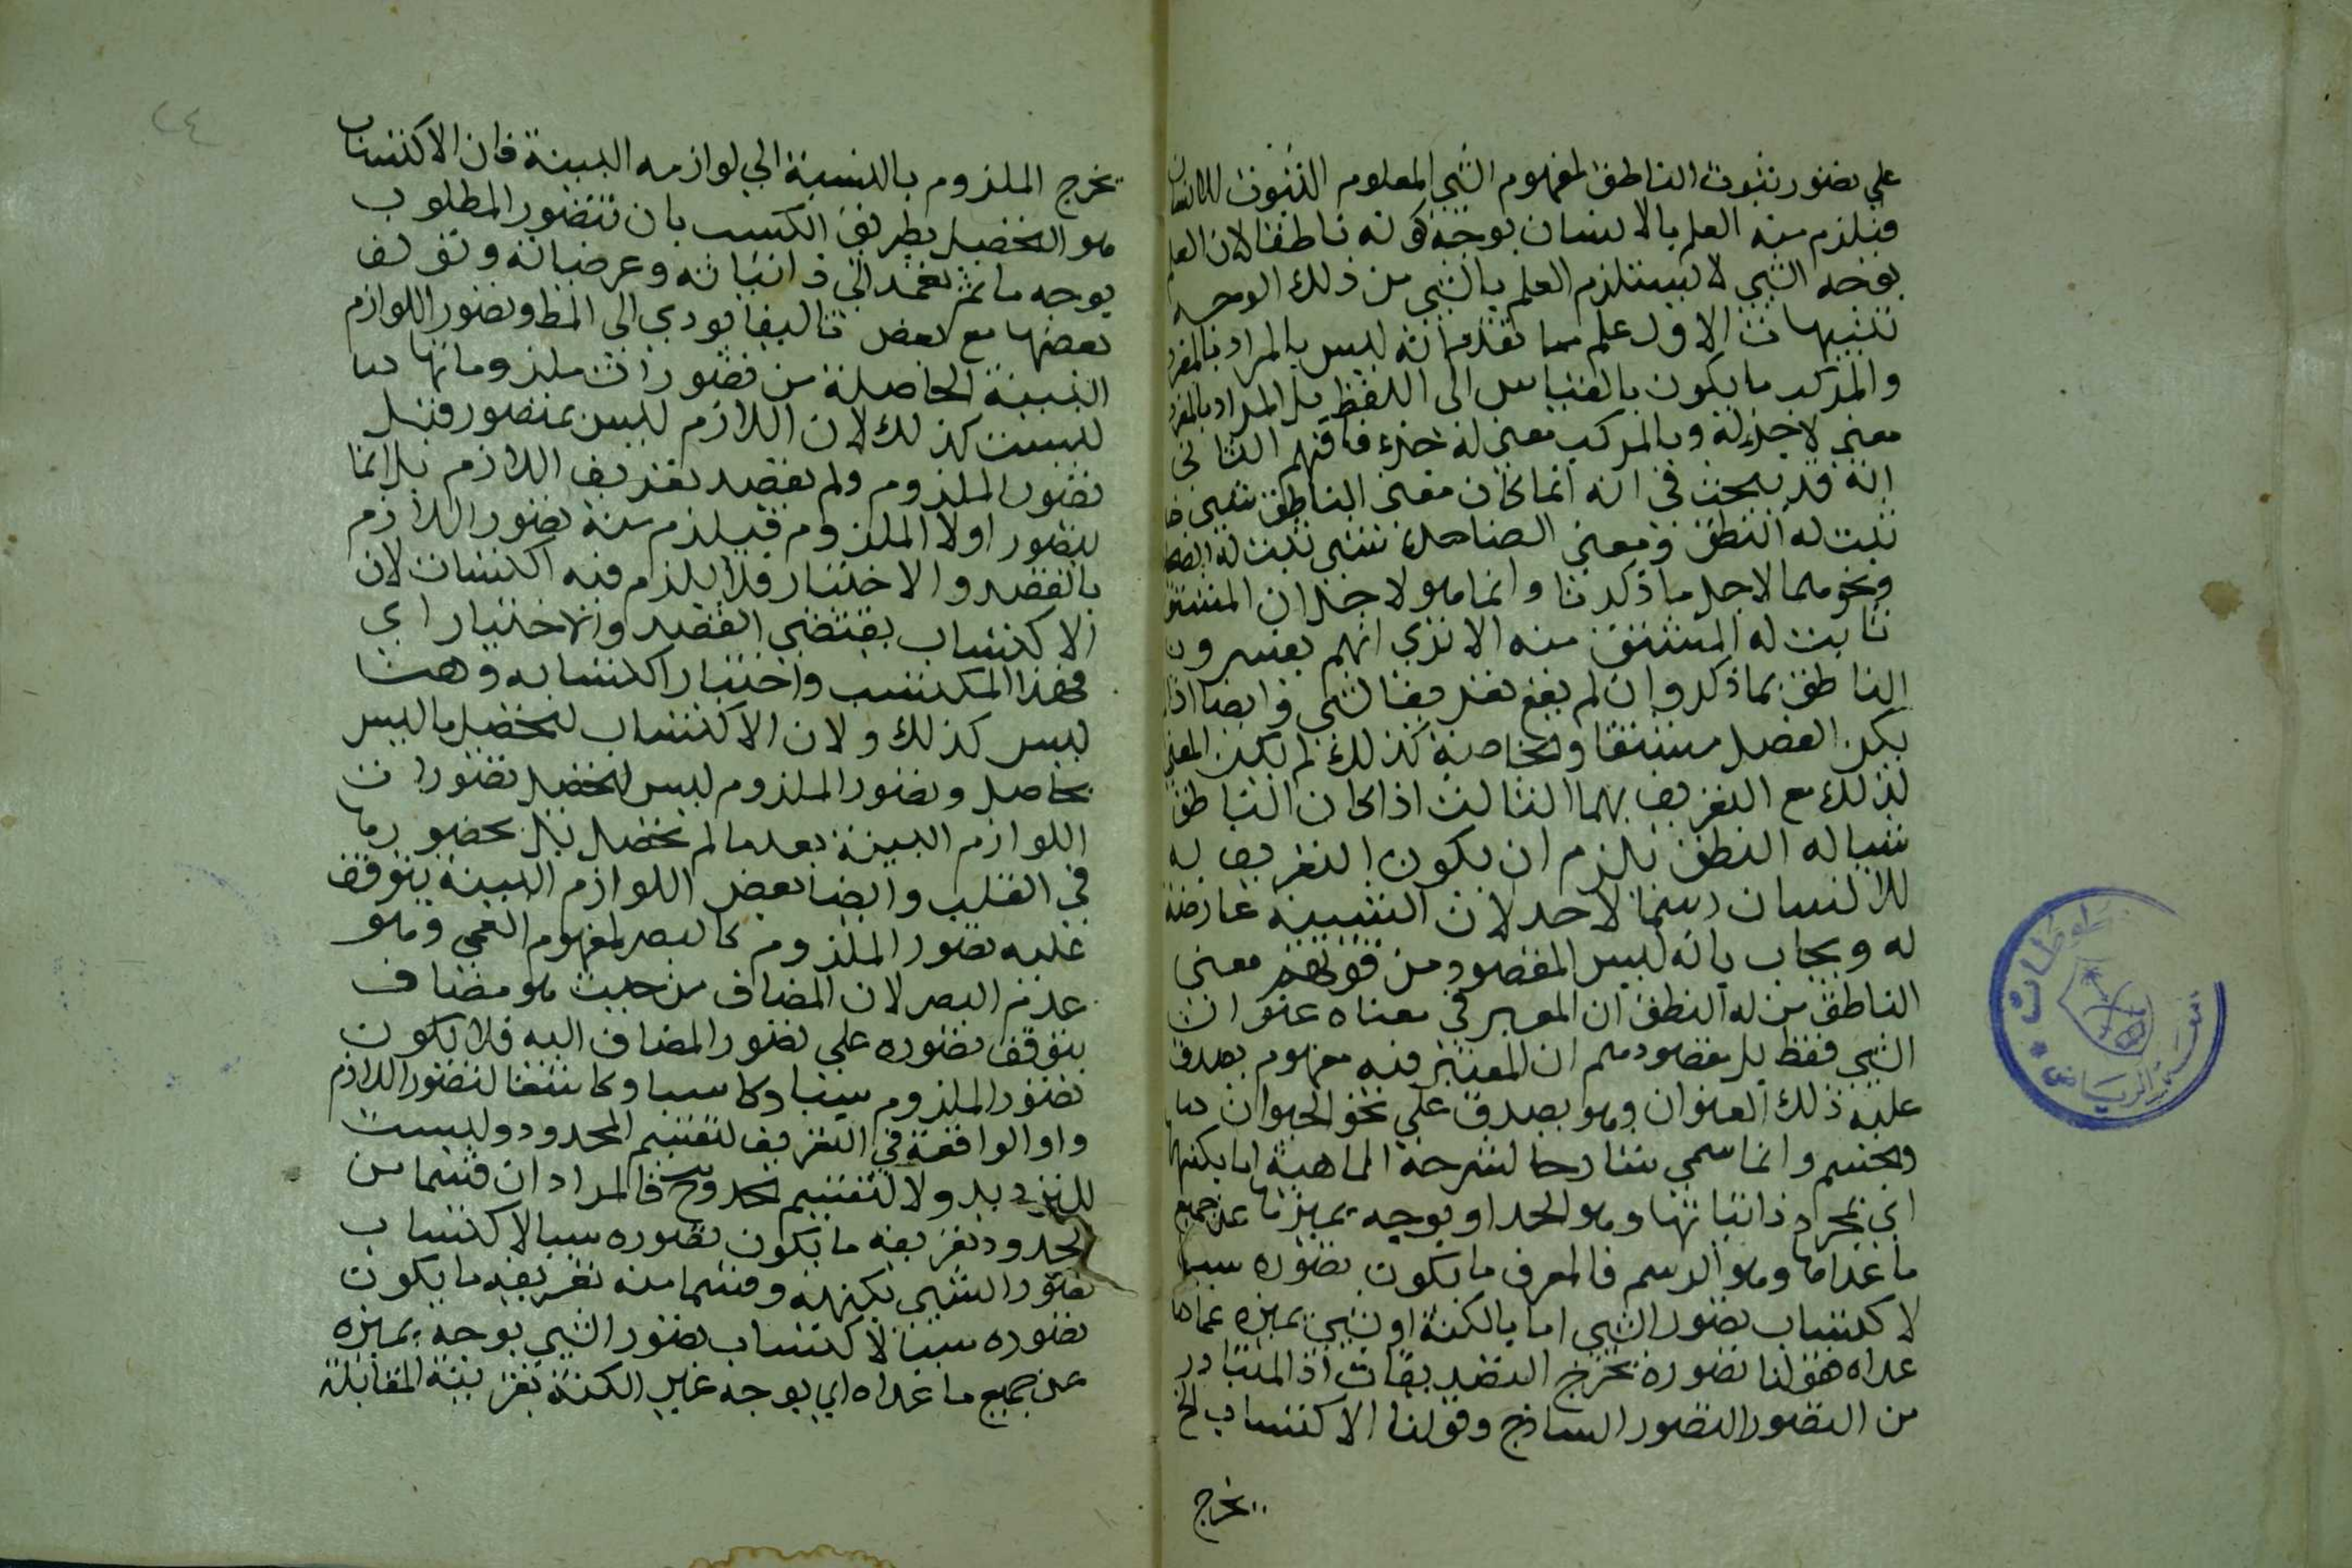 علي تصور ثبوت الناطق لمفهوم الشي المعلوم الثبوت للانسان
فيلزم منه العلم بالانسان بوجه كونه ناطقا لان العلم
بوجه الشي لا يستلزم العلم بالشي من ذلك الوجه
تنبيهات الاول علم مما تقدم انه ليس بالمراد بالمفرد
والمركب ما يكون بالقياس الى اللفظ بل المراد بالمفرد
معنى لا جزء له وبالمركب معنى له جزء فافهم الثاني
انه قد يبحث في انه انما كان معنى الناطق شي
ثبت له النطق ومعنى الضاحك شي ثبت له الضحك
ونحوهما لاجل ما ذكرنا وانما هو لاجل ان المشتق
ثابت له المشتق منه الا تري انهم يفسرون
الناطق بما ذكر وان لم يقع تعريفا لشي وايضا اذا
يكن الفصل مشتقا والخاصة كذلك لم يكن المعنى
لذلك مع التعريف بهما الثالث اذا كان الناطق
شيا له النطق يلزم ان يكون التعريف به
للانسان رسما لا حد لان الشيية عارضة
له ويجاب بانه ليس المقصود من قولهم معنى
الناطق من له النطق ان المعبر في معناه عنوان
الشي فقط بل مقصودهم ان المعتبر فيه مفهوم يصدق
عليه ذلك العنوان وهو يصدق علي نحو الحيوان
والجسم وانما سمي شارحا لشرحه الماهية اما بكنهها
اي بمجرد ذاتياتها وهو الحد او بوجه يميزها عن جميع
ما عداها وهو الرسم فالمعرف ما يكون تصوره سببا
لاكتساب تصور الشي اما بالكنه او بشي يميزه عما
عداه فقولنا تصوره يخرج التصديقات اذ المتبادر
من التصور التصور الساذج وقولنا الاكتساب الخ
يخرج
يخرج الملزوم بالنسبة الي لوازمه البينة فان الاكتساب
هو التحصيل بطريق الكسب بان تتصور المطلوب
بوجه ما ثم تعمد الي ذاتياته وعرضياته وتولف
بعضها مع بعض تاليفا يودي الى المط وتصور اللوازم
البينة الحاصلة من تصورات ملزوماتها
ليست كذلك لان اللازم ليس بمتصور قبل
تصور الملزوم ولم يقصد تعريف اللازم بل انما
يتصور اولا الملزوم فيلزم منه تصور اللازم
بالقصد والاختيار فلا يلزم فيه اكتساب لان
الاكتساب يقتضي القصد والاختيار اي
قصد المكتسب واختيار اكتسابه وهنا
ليس كذلك ولان الاكتساب لتحصيل ما ليس
بحاصل وتصور الملزوم ليس لتحصيل تصورات
اللوازم البينة بعد ما لم تحصل بل بحضورها
في القلب وايضا بعض اللوازم البينة يتوقف
عليه تصور الملزوم كالبصر لمفهوم العمي وهو
عدم البصر لان المضاف من حيث هو مضاف
يتوقف تصوره علي تصور المضاف اليه فلا يكون
تصور الملزوم سببا وكاسبا وكاشفا لتصور اللازم
واو الواقعة في التعريف لتقسيم المحدود وليست
للترديد ولا لتقسيم الحد وح فالمراد ان قسما من
المحدود تعريفه ما يكون تصوره سببا لاكتساب
تصور الشي بكنهه وقسما منه تعريفه ما يكون
تصوره سببا لاكتساب تصور الشي بوجه يميزه
عن جميع ما عداه اي بوجه غير الكنه بقرينة المقابلة